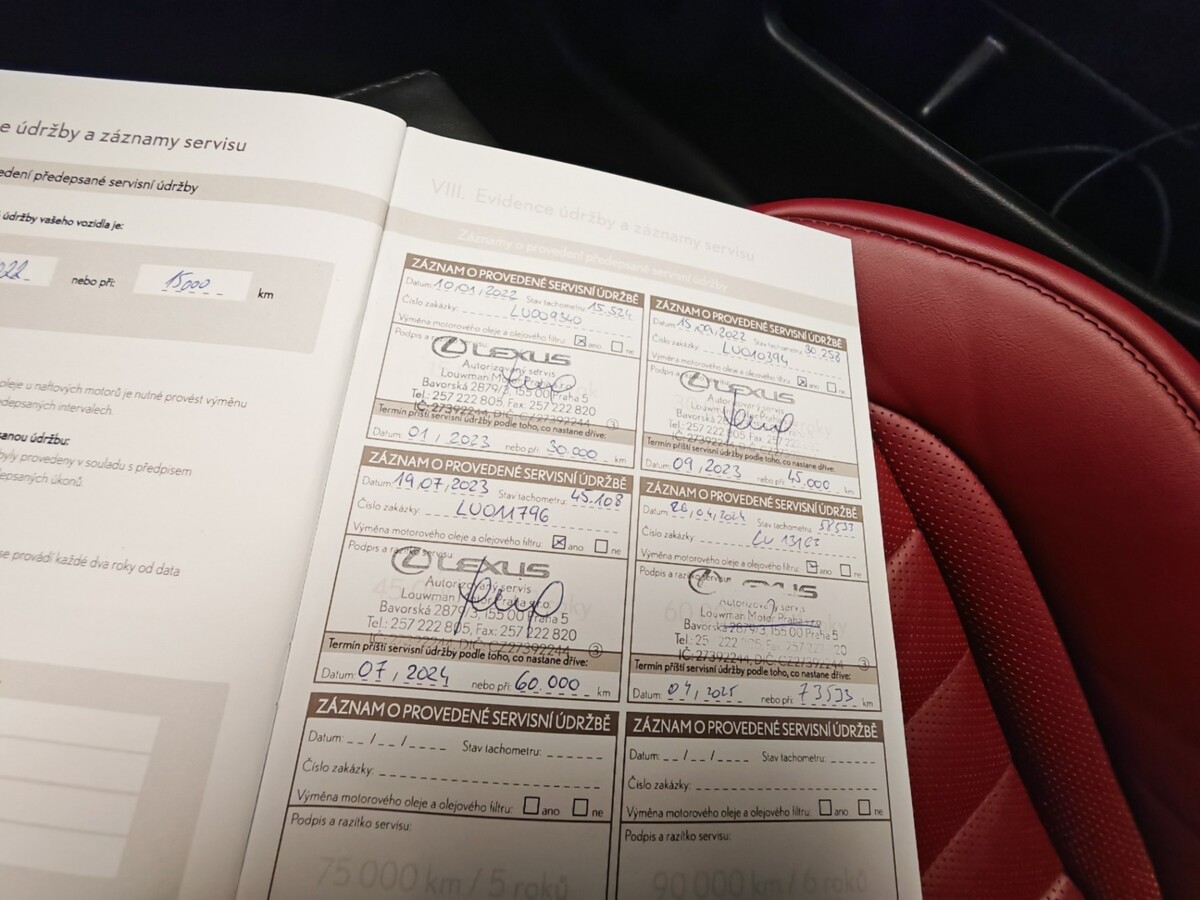 e údržby a záznamy servisu
edení předepsané servisní údržby
údržby vašeho vozidla je:
022 nebo při: 15000 km
oleje u naftových motorů je nutné provést výměnu
edepsaných intervalech.
sanou údržbu:
byly provedeny v souladu s předpisem
depsaných úkonů
se provádí každé dva roky od data
VIII. Evidence údržby a záznamy servisu
Záznamy o provedení předepsané servisní údržby
ZÁZNAM O PROVEDENÉ SERVISNÍ ÚDRŽBĚ
Datum: 10/01/2022 Stav tachometru: 15.524
Číslo zakázky: LU009340
Výměna motorového oleje a olejového filtru: ☒ ano ☐ ne
Podpis a servisu:
LEXUS
Autorizovaný servis
Louwman Motor Praha s.r.o.
Bavorská 2879/3, 155 00 Praha 5
Tel.: 257 222 805, Fax: 257 222 820
IČ: 27392244, DIČ: CZ27392244 3
Termín příští servisní údržby podle toho, co nastane dříve:
Datum: 01/2023 nebo při: 30.000 km
ZÁZNAM O PROVEDENÉ SERVISNÍ ÚDRŽBĚ
Datum: 15/09/2022 Stav tachometru: 30.258
Číslo zakázky: LU010394
Výměna motorového oleje a olejového filtru: ☒ ano ☐ ne
Podpis a
LEXUS
Autorizovaný servis
Louwman Motor Praha s.r.o.
Bavorská 2879/3, 155 00 Praha 5
Tel.: 257 222 805 Fax: 257 222
IČ: 27392244, DIČ: CZ27392244 3
Termín příští servisní údržby podle toho, co nastane dříve:
Datum: 09/2023 nebo při: 45.000 km
ZÁZNAM O PROVEDENÉ SERVISNÍ ÚDRŽBĚ
Datum: 19/07/2023 Stav tachometru: 45.108
Číslo zakázky: LU011796
Výměna motorového oleje a olejového filtru: ☒ ano ☐ ne
Podpis a razítko servisu:
LEXUS
Autorizovaný servis
Louwman Motor Praha s.r.o.
Bavorská 2879/3, 155 00 Praha 5
Tel.: 257 222 805, Fax: 257 222 820
IČ: 27392244, DIČ: CZ27392244 3
Termín příští servisní údržby podle toho, co nastane dříve:
Datum: 07/2024 nebo při: 60.000 km
ZÁZNAM O PROVEDENÉ SERVISNÍ ÚDRŽBĚ
Datum: 26/04/2024 Stav tachometru: 58533
Číslo zakázky:
Výměna motorového oleje a olejového filtru: ☒ ano ☐ ne
Podpis a razítko servisu:
Autorizovaný servis
Louwman Motor Praha s.r.o.
Bavorská 2879/3, 155 00 Praha 5
Tel.: 25 222 805 Fax: 257 222 20
IČ: 27392244, DIČ: CZ27392244 3
Termín příští servisní údržby podle toho, co nastane dříve:
Datum: 04/2025 nebo při: 73533 km
ZÁZNAM O PROVEDENÉ SERVISNÍ ÚDRŽBĚ
Datum: __/__/____ Stav tachometru:
Číslo zakázky:
Výměna motorového oleje a olejového filtru: ☐ ano ☐ ne
Podpis a razítko servisu:
75 000 km / 5 roků
ZÁZNAM O PROVEDENÉ SERVISNÍ ÚDRŽBĚ
Datum: __/__/____ Stav tachometru:
Číslo zakázky:
Výměna motorového oleje a olejového filtru: ☐ ano ☐ ne
Podpis a razítko servisu:
90 000 km / 6 roků